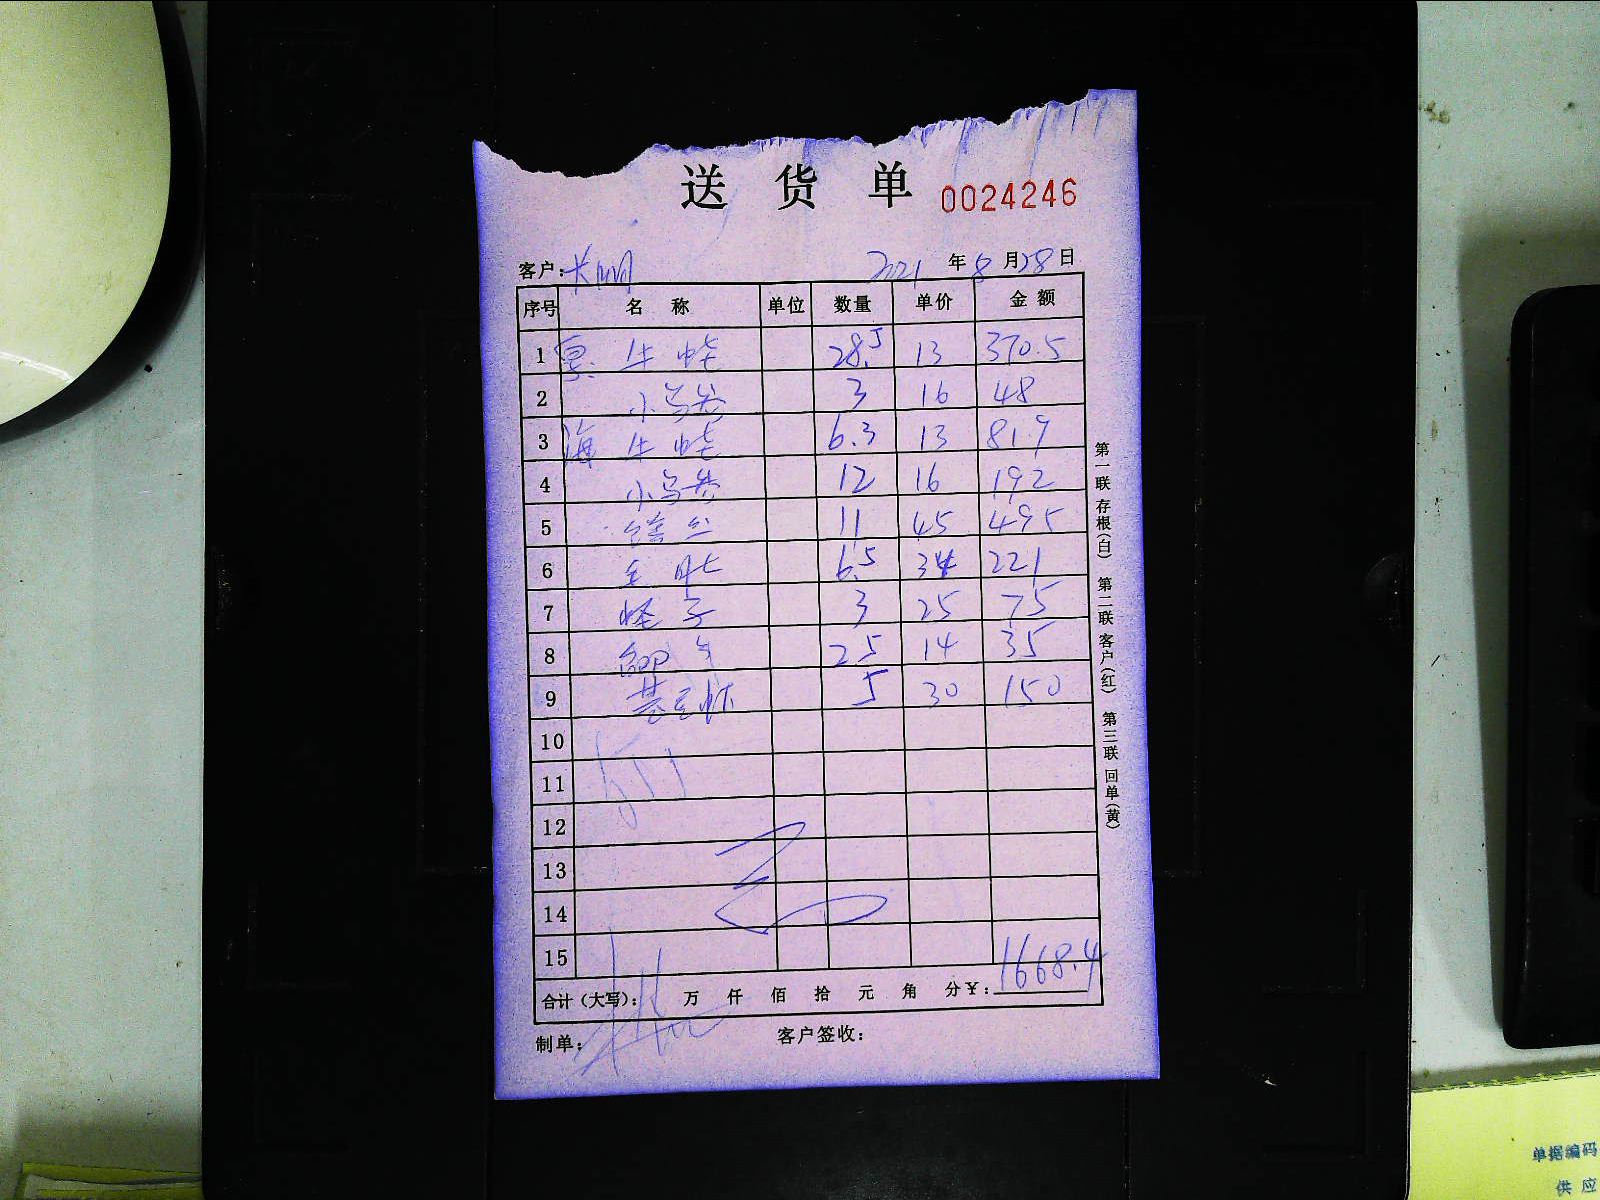 送货单 0024246
客户: 2021年8月28日
序号 名称 单位 数量 单价 金额
1 牛蛙 28.5 13 370.5
2 小乌 3 16 48
3 海 牛蛙 6.3 13 81.9
4 小乌 12 16 192
5 11 45 495
6 6.5 34 221
7 蛏子 3 25 75
8 25 14 35
9 5 30 150
10
11
12
13
14
15
合计(大写): 万 仟 佰 拾 元 角 分 ¥: 1668.4
制单: 客户签收:
第一联 存根(白) 第二联 客户(红) 第三联 回单(黄)
单据编码
供应